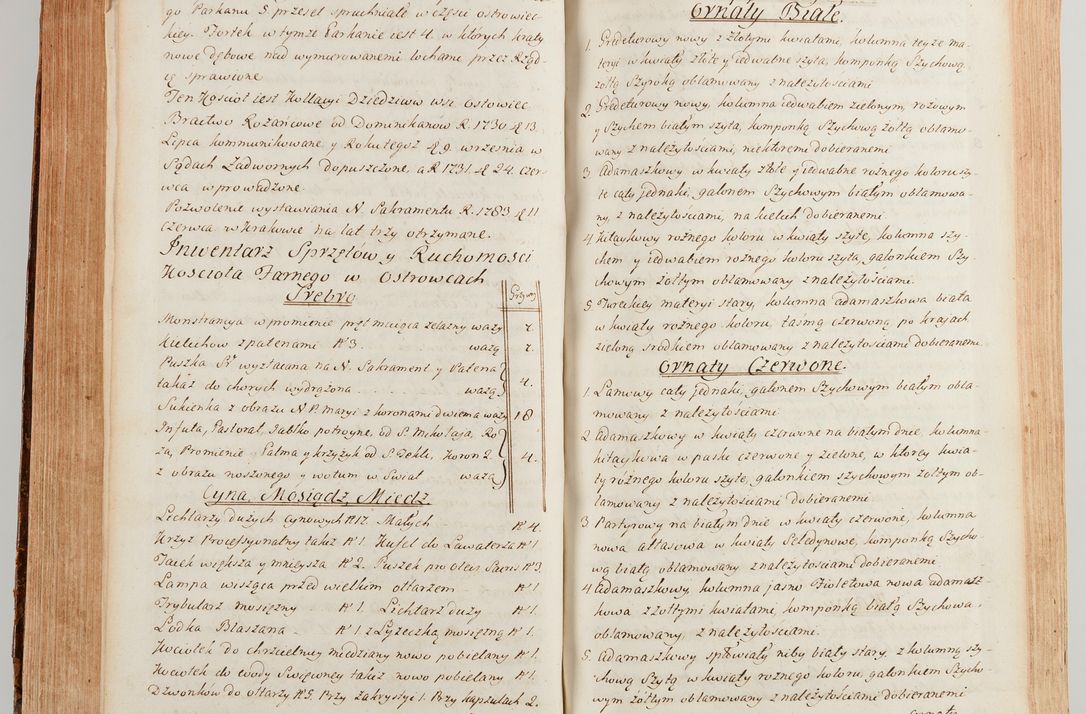 go Parkanu 5 przeseł spruchniałe w części ostrowiec-
kiey. Fortek w tymże Parkanie iest 4. w których kraty
nowe dębowe nad wymurowanemi lochami przez Rząd-
cę sprawione
Ten Kościoł iest Kollacyi Dziedziców wsi Ostowiec
Bractwo Rożańcowe od Dominikanów R. 1730 d 13
Lipca kommunikowane, y Roku tegoż d 9. września w
Sądach Zadwornych dopuszczone, a R 1731. d 24. czer-
wca wprowadzone
Pozwolenie wystawiania N. Sakramentu R. 1783 d 11
Czerwca w Krakowie na lat trzy otrzymane.
Inwentarz Sprzętów y Ruchomości
Kościoła Farnego w Ostrowcach
Srebro
Monstrancya w promienie pręt maiąca żelazny waży
Kielichow z patenami N 3. ważą
Puszka Sr wyzłacana na N. Sakrament y Patena
takaż do chorych wydrążona ważą 4.
Sukienka z obrazu N. P. Maryi z koronami dwiema waży 18
Infuła, Pastorał, Jabłko potroyne, od S. Mikołaja, Ro
za, Promienie y Palma y krzyżyk od S. Tekli, Koron 2. 4.
z obrazu noszonego y wotum w Świat ważą
Cyna, Mosiądz, Miedz
Lichtarzy dużych cynowych N 17. Małych N 4.
Krzyż Processyonalny takiż N 1. Kufel do Lawaterza N 1
Tacek większa y mnieysza N 2. Puszek pro oleis Sacris N 3.
Lampa wisząca przed wielkim ołtarzem N 1
Trybularz mosiężny N 1. Lichtarz duży N 1.
Łodka Blaszana N 1 z Łyżeczką mosiężną N 1.
Kociołek do chrzcielnicy miedziany nowo pobielany N 1.
Kociołek do wody Swięconey takiż nowo pobielany N 1.
Dzwonkow do ołtarzy N 5. Przy zakrystyi 1. Przy kapzułach 2.
Ornaty Białe.
1. Gredeturowy nowy z złotymi kwiatami, kolumna teyże ma-
teryi w kwiaty złote y iedwabne szyta, komponką Szychową
żołtą Szyroką oblamowany z należytościami
2. Gredeturowy nowy, kolumna iedwabiem zielonym, rożowym
y Szychem białym szyta, komponką Szychową żołtą oblamo-
wany z należytościami, niektoremi dobieranemi
3 Adamaszkowy w kwiaty złote y iedwabne rożnego koloru szy-
te cały jednaki, galonem Szychowym białym oblamowa-
ny, z należytościami, na kielich dobieranemi.
4 Kitaykowy rożnego koloru w kwiaty szyte, kolumna szy-
chem y iedwabiem rożnego koloru szyta, galonkiem Szy-
chowym żołtym oblamowany z należytościami.
5. Tureckiey materyi stary, kolumna adamaszkowa biała
w kwiaty rożnego koloru, taśmą czerwoną po krajach
zieloną srodkiem oblamowany z należytościami dobieranemi
Ornaty Czerwone.
1. Lamowy cały jednaki, galonem Szychowym białym obla-
mowany z należytościami
2 Adamaszkowy w kwiaty czerwone na białym dnie, kolumna
kitaykowa w paski czerwone y zielone, w ktorey kwia-
ty rożnego koloru szyte, galonkiem szychowym żołtym ob-
lamowany z należytościami dobieranemi
3 Partyrowy na białym dnie w kwiaty czerwone, kolumna
nowa atłasowa w kwiaty Seledynowe, komponką Szycho-
wą białą oblamowany z należytościami dobieranemi
4 Adamaszkowy, kolumna jasno Fioletowa nowa adamasz-
kowa z żołtymi kwiatami, komponką białą Szychową
oblamowany, z należytościami.
5. Adamaszkowy spłowiały niby biały stary, z kolumną szy-
chową Szytą w kwiaty rożnego koloru, galonkiem Szycho-
wym żołtym oblamowany z należytościami dobieranemi
Ornaty